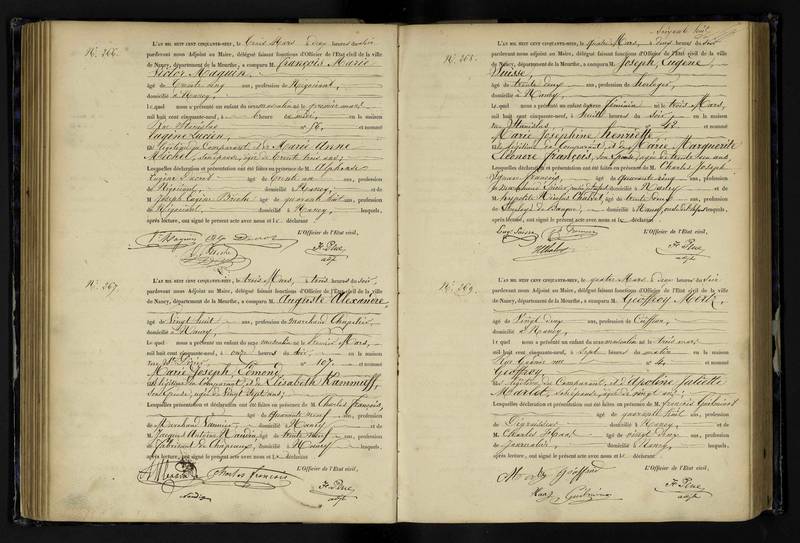 N.º 266.
L'AN MIL HUIT CENT CINQUANTE-NEUF, le trois Mars, deux heures
pardevant nous Adjoint au Maire, délégué faisant fonctions d'Officier de l'Etat civil de la ville
de Nancy, département de la Meurthe, a comparu M. François Marie
Victor Maguin,
âgé de trente cinq ans, profession de Négociant,
domicilié à Nancy,
Lequel nous a présenté un enfant de sexe masculin né le premier mars,
mil huit cent cinquante-neuf, à heure du soir, en la maison
Rue Stanislas n.º 56, et nommé
Eugène Lucien,
fils légitime du Comparant et de Marie Anne
Michel, son épouse, âgée de trente trois ans;
Lesquelles déclaration et présentation ont été faites en présence de M. Alphonse
Eugène âgé de trente un ans, profession
de Négociant, domicilié à Nancy, et de
M. Joseph Eugène âgé de quarante huit ans, profession
de Négociant, domicilié à Nancy, lesquels,
après lecture, ont signé le présent acte avec nous et le déclarant
L'Officier de l'Etat civil,
V. Maguin
adjt
N.º 267.
L'AN MIL HUIT CENT CINQUANTE-NEUF, le trois Mars, à trois heures du soir,
pardevant nous Adjoint au Maire, délégué faisant fonctions d'Officier de l'Etat civil de la ville
de Nancy, département de la Meurthe, a comparu M. Auguste Alexandre,
âgé de vingt huit ans, profession de marchand Chapelier,
domicilié à Nancy,
Lequel nous a présenté un enfant de sexe masculin né le premier Mars,
mil huit cent cinquante-neuf, à onze heures du soir, en la maison
rue St Dizier n.º 107, et nommé
Marie Joseph, Edmond,
fils légitime du Comparant, et de Elisabeth Kammuff,
son épouse, âgée de vingt sept ans;
Lesquelles présentation et déclaration ont été faites en présence de M. Charles François,
âgé de quarante neuf ans, profession
de Marchand Vannier, domicilié à Nancy, et de
M. Jacques Antoine âgé de trente neuf ans, profession
de fabricant de Chapeaux, domicilié à Nancy, lesquels,
après lecture, ont signé le présent acte avec nous et le déclarant
L'Officier de l'Etat civil,
Charles François
adjt
N.º 268.
L'AN MIL HUIT CENT CINQUANTE-NEUF, le quatre Mars, à deux heures du soir
pardevant nous Adjoint au Maire, délégué faisant fonctions d'Officier de l'Etat civil de la ville
de Nancy, département de la Meurthe, a comparu M. Joseph, Eugène,
Suisse,
âgé de trente deux ans, profession de horloger,
domicilié à Nancy,
Lequel nous a présenté un enfant de sexe féminin né le trois Mars,
mil huit cent cinquante-neuf, à huit heures du soir, en la maison
rue Stanislas n.º 42, et nommé
Marie Joséphine henriette,
fille légitime du Comparant, et de Marie Marguerite
Eléonore François, son Epouse, âgée de trente deux ans,
Lesquelles déclaration et présentation ont été faites en présence de M. Charles Joseph
François, âgé de quarante cinq ans, profession
domicilié à Nancy et de
M. hippolite Nicolas Chatel, âgé de trente ans, profession
de Employé de Banque, domicilié à Nancy, lesquels,
après lecture, ont signé le présent acte avec nous et le déclarant
L'Officier de l'Etat civil,
Eug Suisse
adjt
N.º 269.
L'AN MIL HUIT CENT CINQUANTE-NEUF, le quatre Mars, à deux heures du soir
pardevant nous Adjoint au Maire, délégué faisant fonctions d'Officier de l'Etat civil de la ville
de Nancy, département de la Meurthe, a comparu M. Geoffroy Mertz,
âgé de vingt deux ans, profession de Coiffeur,
domicilié à Nancy,
Lequel nous a présenté un enfant de sexe masculin né le trois mars,
mil huit cent cinquante-neuf, à sept heures du matin, en la maison
Rue n.º 4, et nommé
Geoffroy,
fils légitime du Comparant, et de Apoline Juliette
son épouse, âgée de vingt ans;
Lesquelles déclaration et présentation ont été faites en présence de M. françois
âgé de quarante huit ans, profession
de domicilié à Nancy, et de
M. Charles Haas, âgé de vingt deux ans, profession
de journalier, domicilié à Nancy, lesquels,
après lecture, ont signé le présent acte avec nous et le déclarant
L'Officier de l'Etat civil,
Haas
adjt